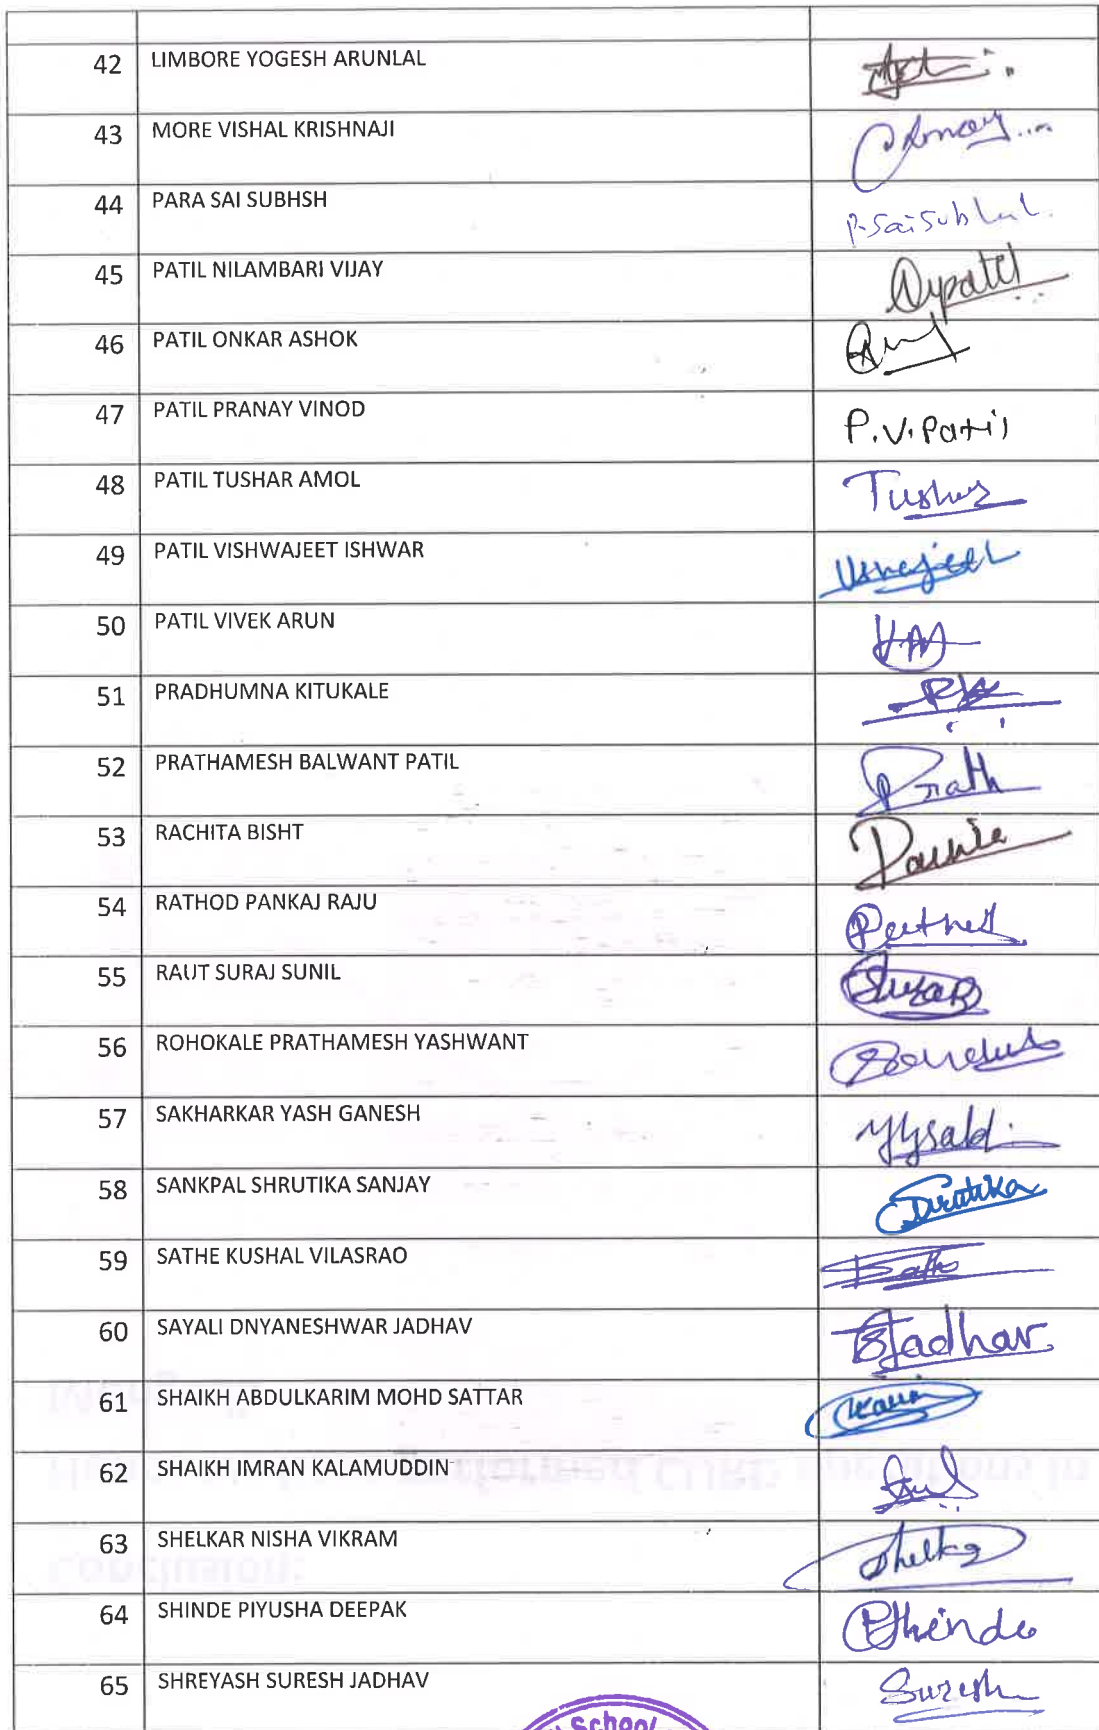 42 LIMBORE YOGESH ARUNLAL
43 MORE VISHAL KRISHNAJI
44 PARA SAI SUBHSH P.SaiSubhal.
45 PATIL NILAMBARI VIJAY
46 PATIL ONKAR ASHOK
47 PATIL PRANAY VINOD P.V.Patil
48 PATIL TUSHAR AMOL Tushar
49 PATIL VISHWAJEET ISHWAR
50 PATIL VIVEK ARUN
51 PRADHUMNA KITUKALE
52 PRATHAMESH BALWANT PATIL Prath
53 RACHITA BISHT
54 RATHOD PANKAJ RAJU
55 RAUT SURAJ SUNIL
56 ROHOKALE PRATHAMESH YASHWANT
57 SAKHARKAR YASH GANESH
58 SANKPAL SHRUTIKA SANJAY
59 SATHE KUSHAL VILASRAO
60 SAYALI DNYANESHWAR JADHAV SJadhav.
61 SHAIKH ABDULKARIM MOHD SATTAR
62 SHAIKH IMRAN KALAMUDDIN
63 SHELKAR NISHA VIKRAM
64 SHINDE PIYUSHA DEEPAK PShinde
65 SHREYASH SURESH JADHAV Suresh
School